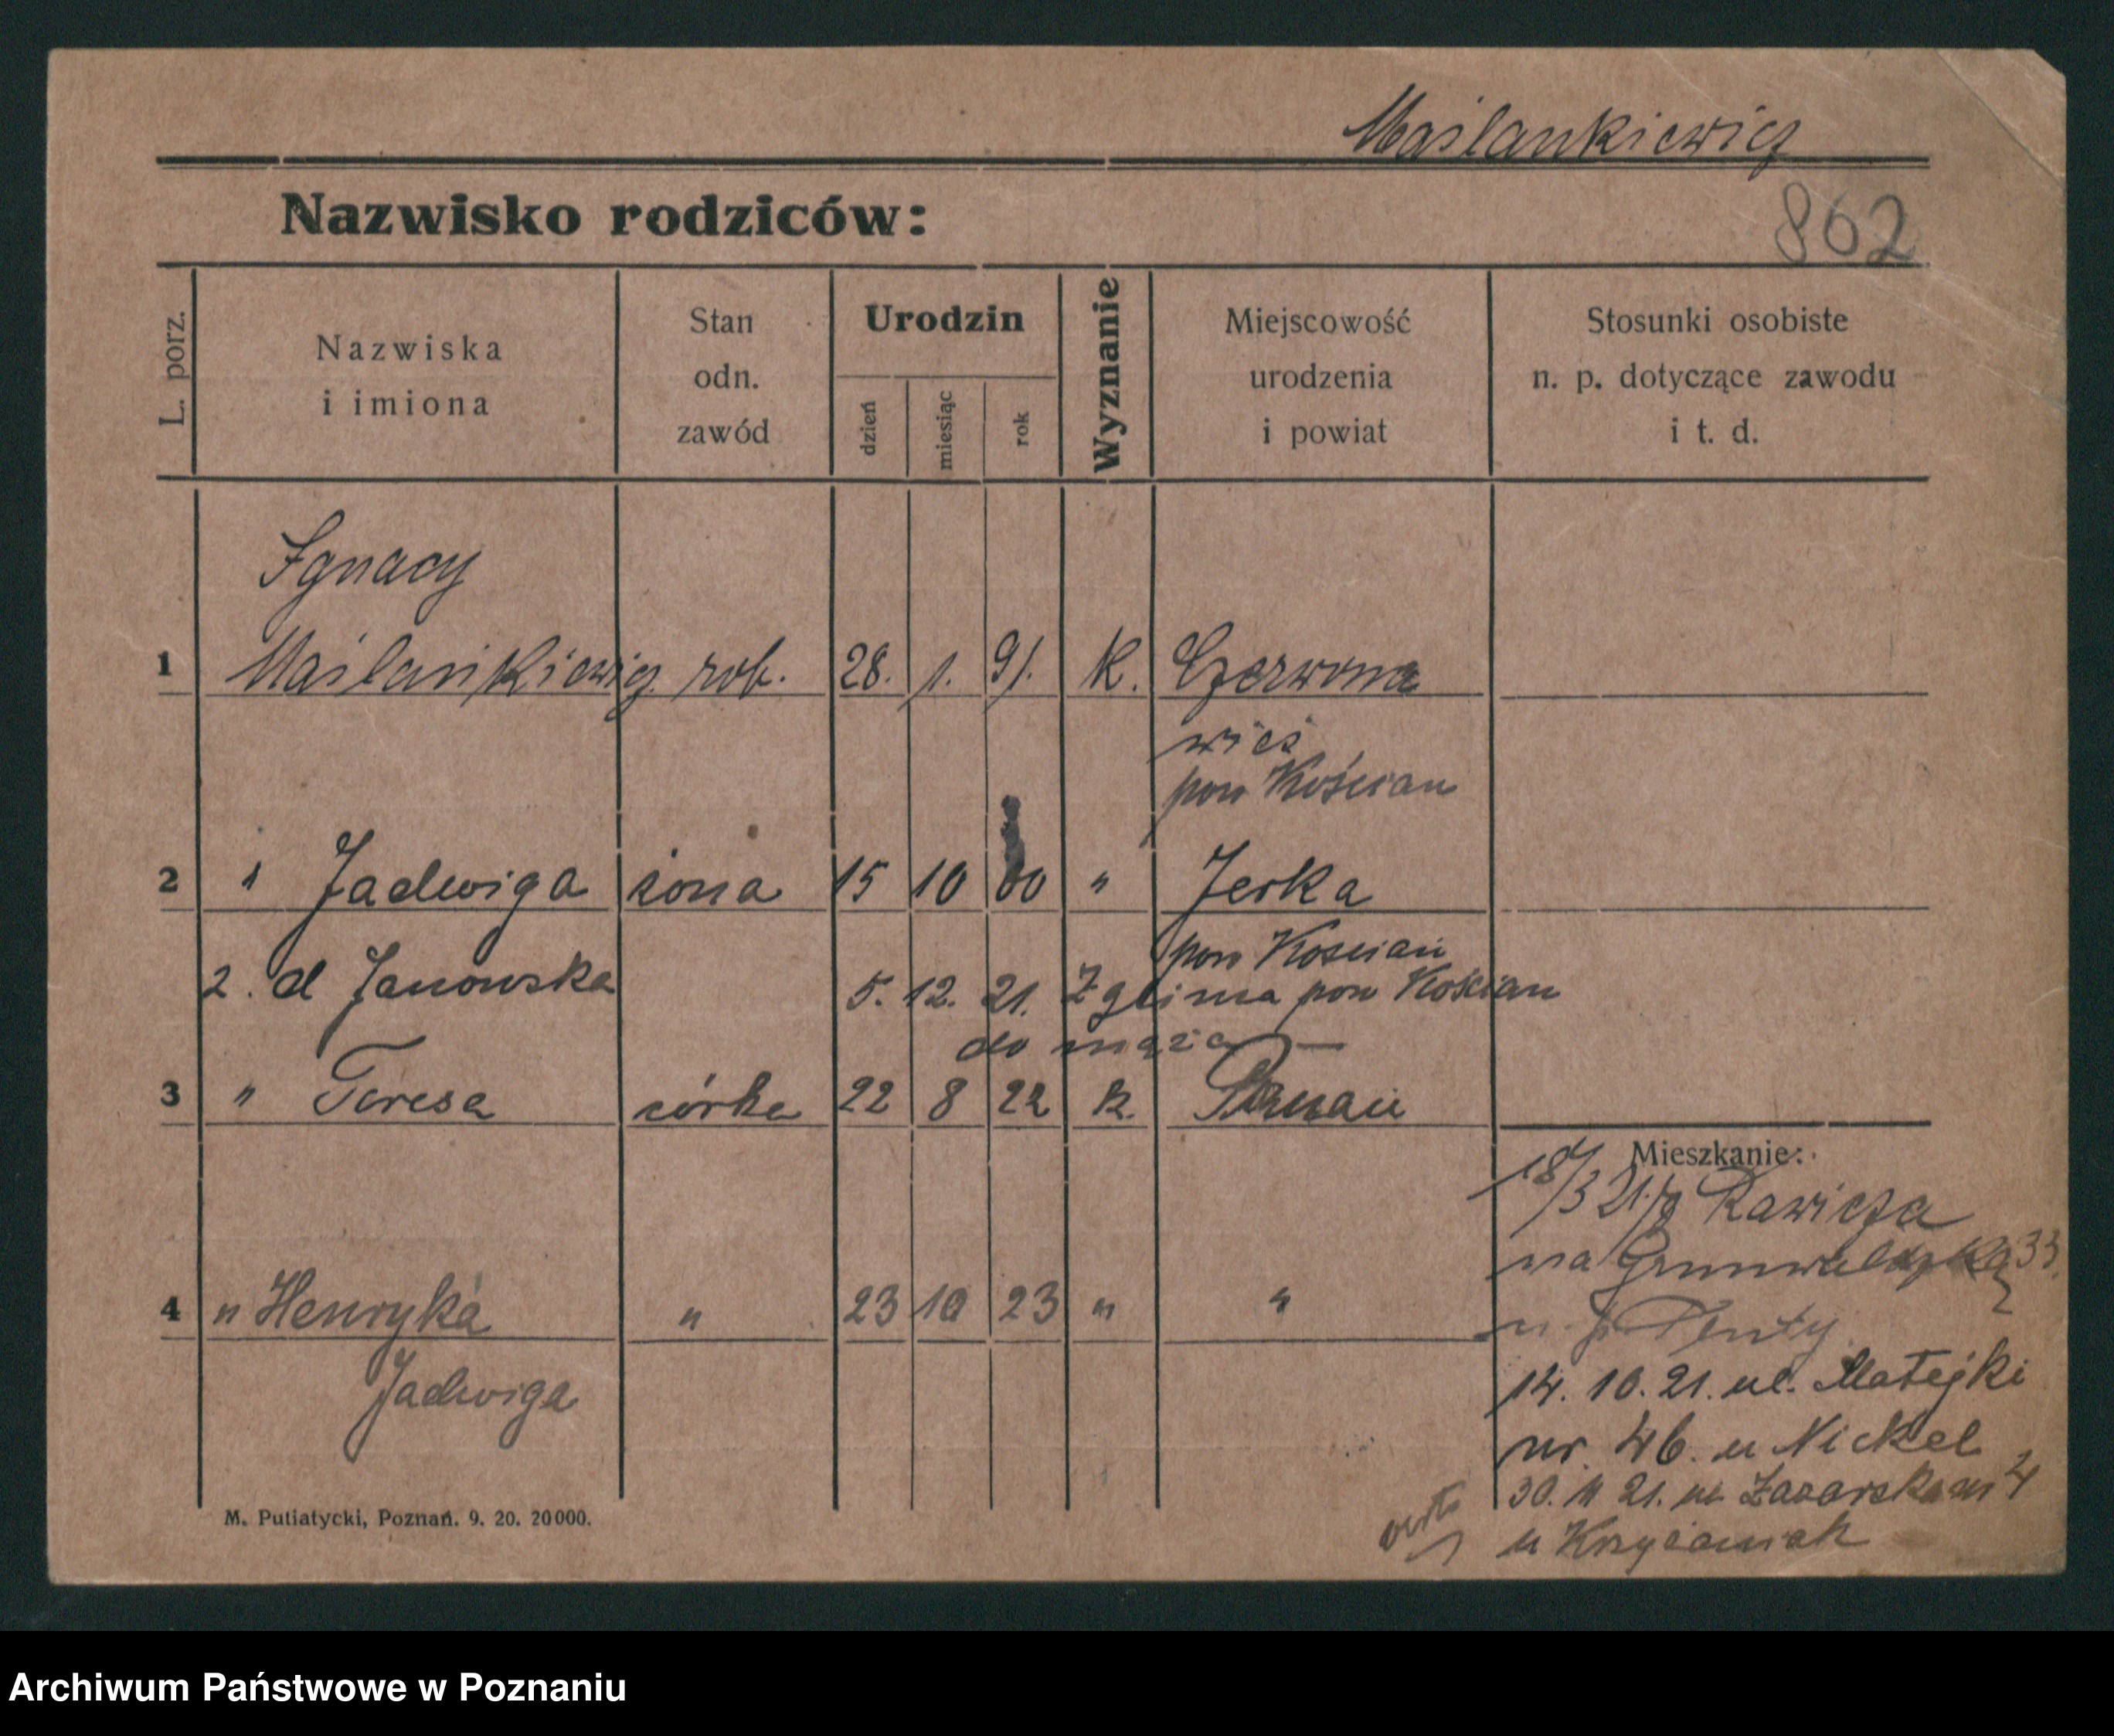 Maślankiewicz
Nazwisko rodziców:
862
L. porz.
Nazwiska
i imiona
Stan
odn.
zawód
Urodzin
dzień
miesiąc
rok
Wyznanie
Miejscowość
urodzenia
i powiat
Stosunki osobiste
n. p. dotyczące zawodu
i t. d.
Ignacy
1 Maślankiewicz rob. 28. 1. 91. k. Czerwona
wieś
pow Kościan
2 " Jadwiga żona 15 10 00 " Jerka
pow Kościan
z. d Janowska 5. 12. 21. Zglinia pow Kościan
do męża
3 " Teresa córka 22 8 22 k. Poznań
Mieszkanie:
18/3 21 z Rawicza
na Grunwaldzką 33.
u p.
4 " Henryka " 23 10 23 " "
Jadwiga
14. 10. 21. ul. Matejki
nr. 46. u Nickel
30. 11 21. ul Łazarska nr 4
u Krzyżaniak
M. Putiatycki, Poznań. 9. 20. 20000.
Archiwum Państwowe w Poznaniu